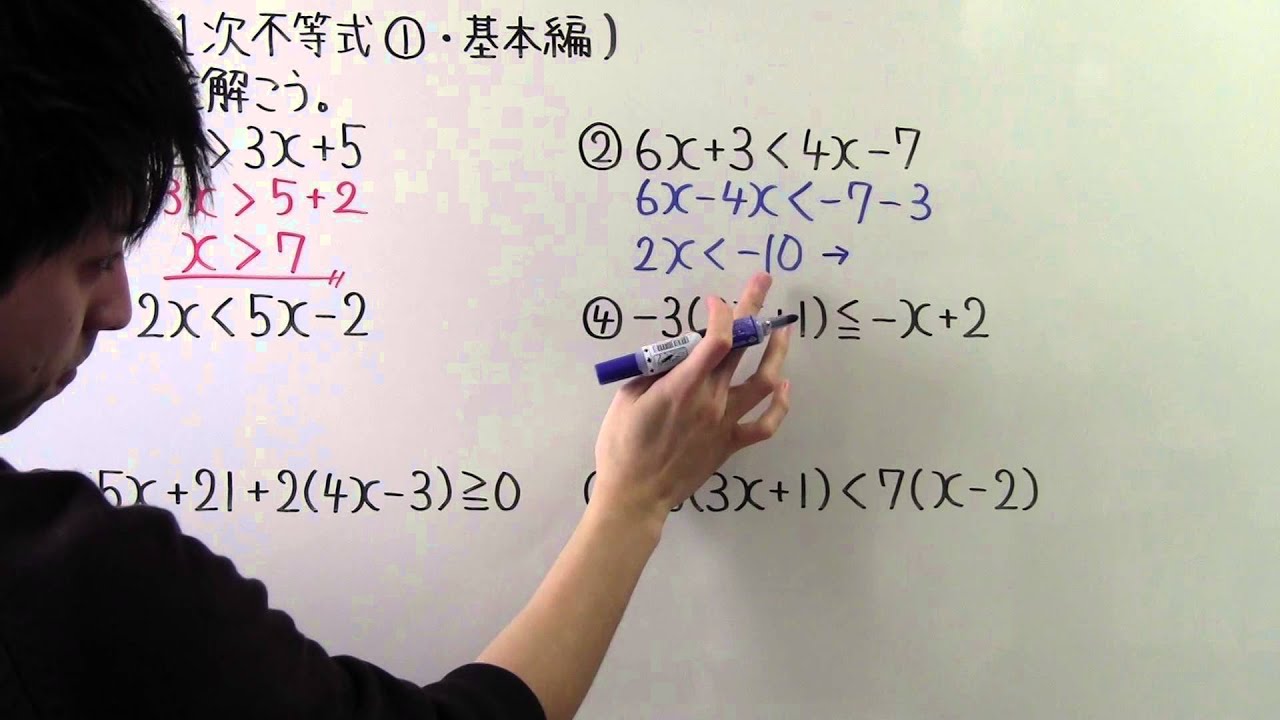 1次不等式①・基本編)
解こう。
> 3x+5
3x > 5+2
x > 7
2x < 5x-2
5x+21+2(4x-3)≧0
② 6x+3 < 4x-7
6x-4x < -7-3
2x < -10 →
④ -3( +1) ≦ -x+2
(3x+1) < 7(x-2)